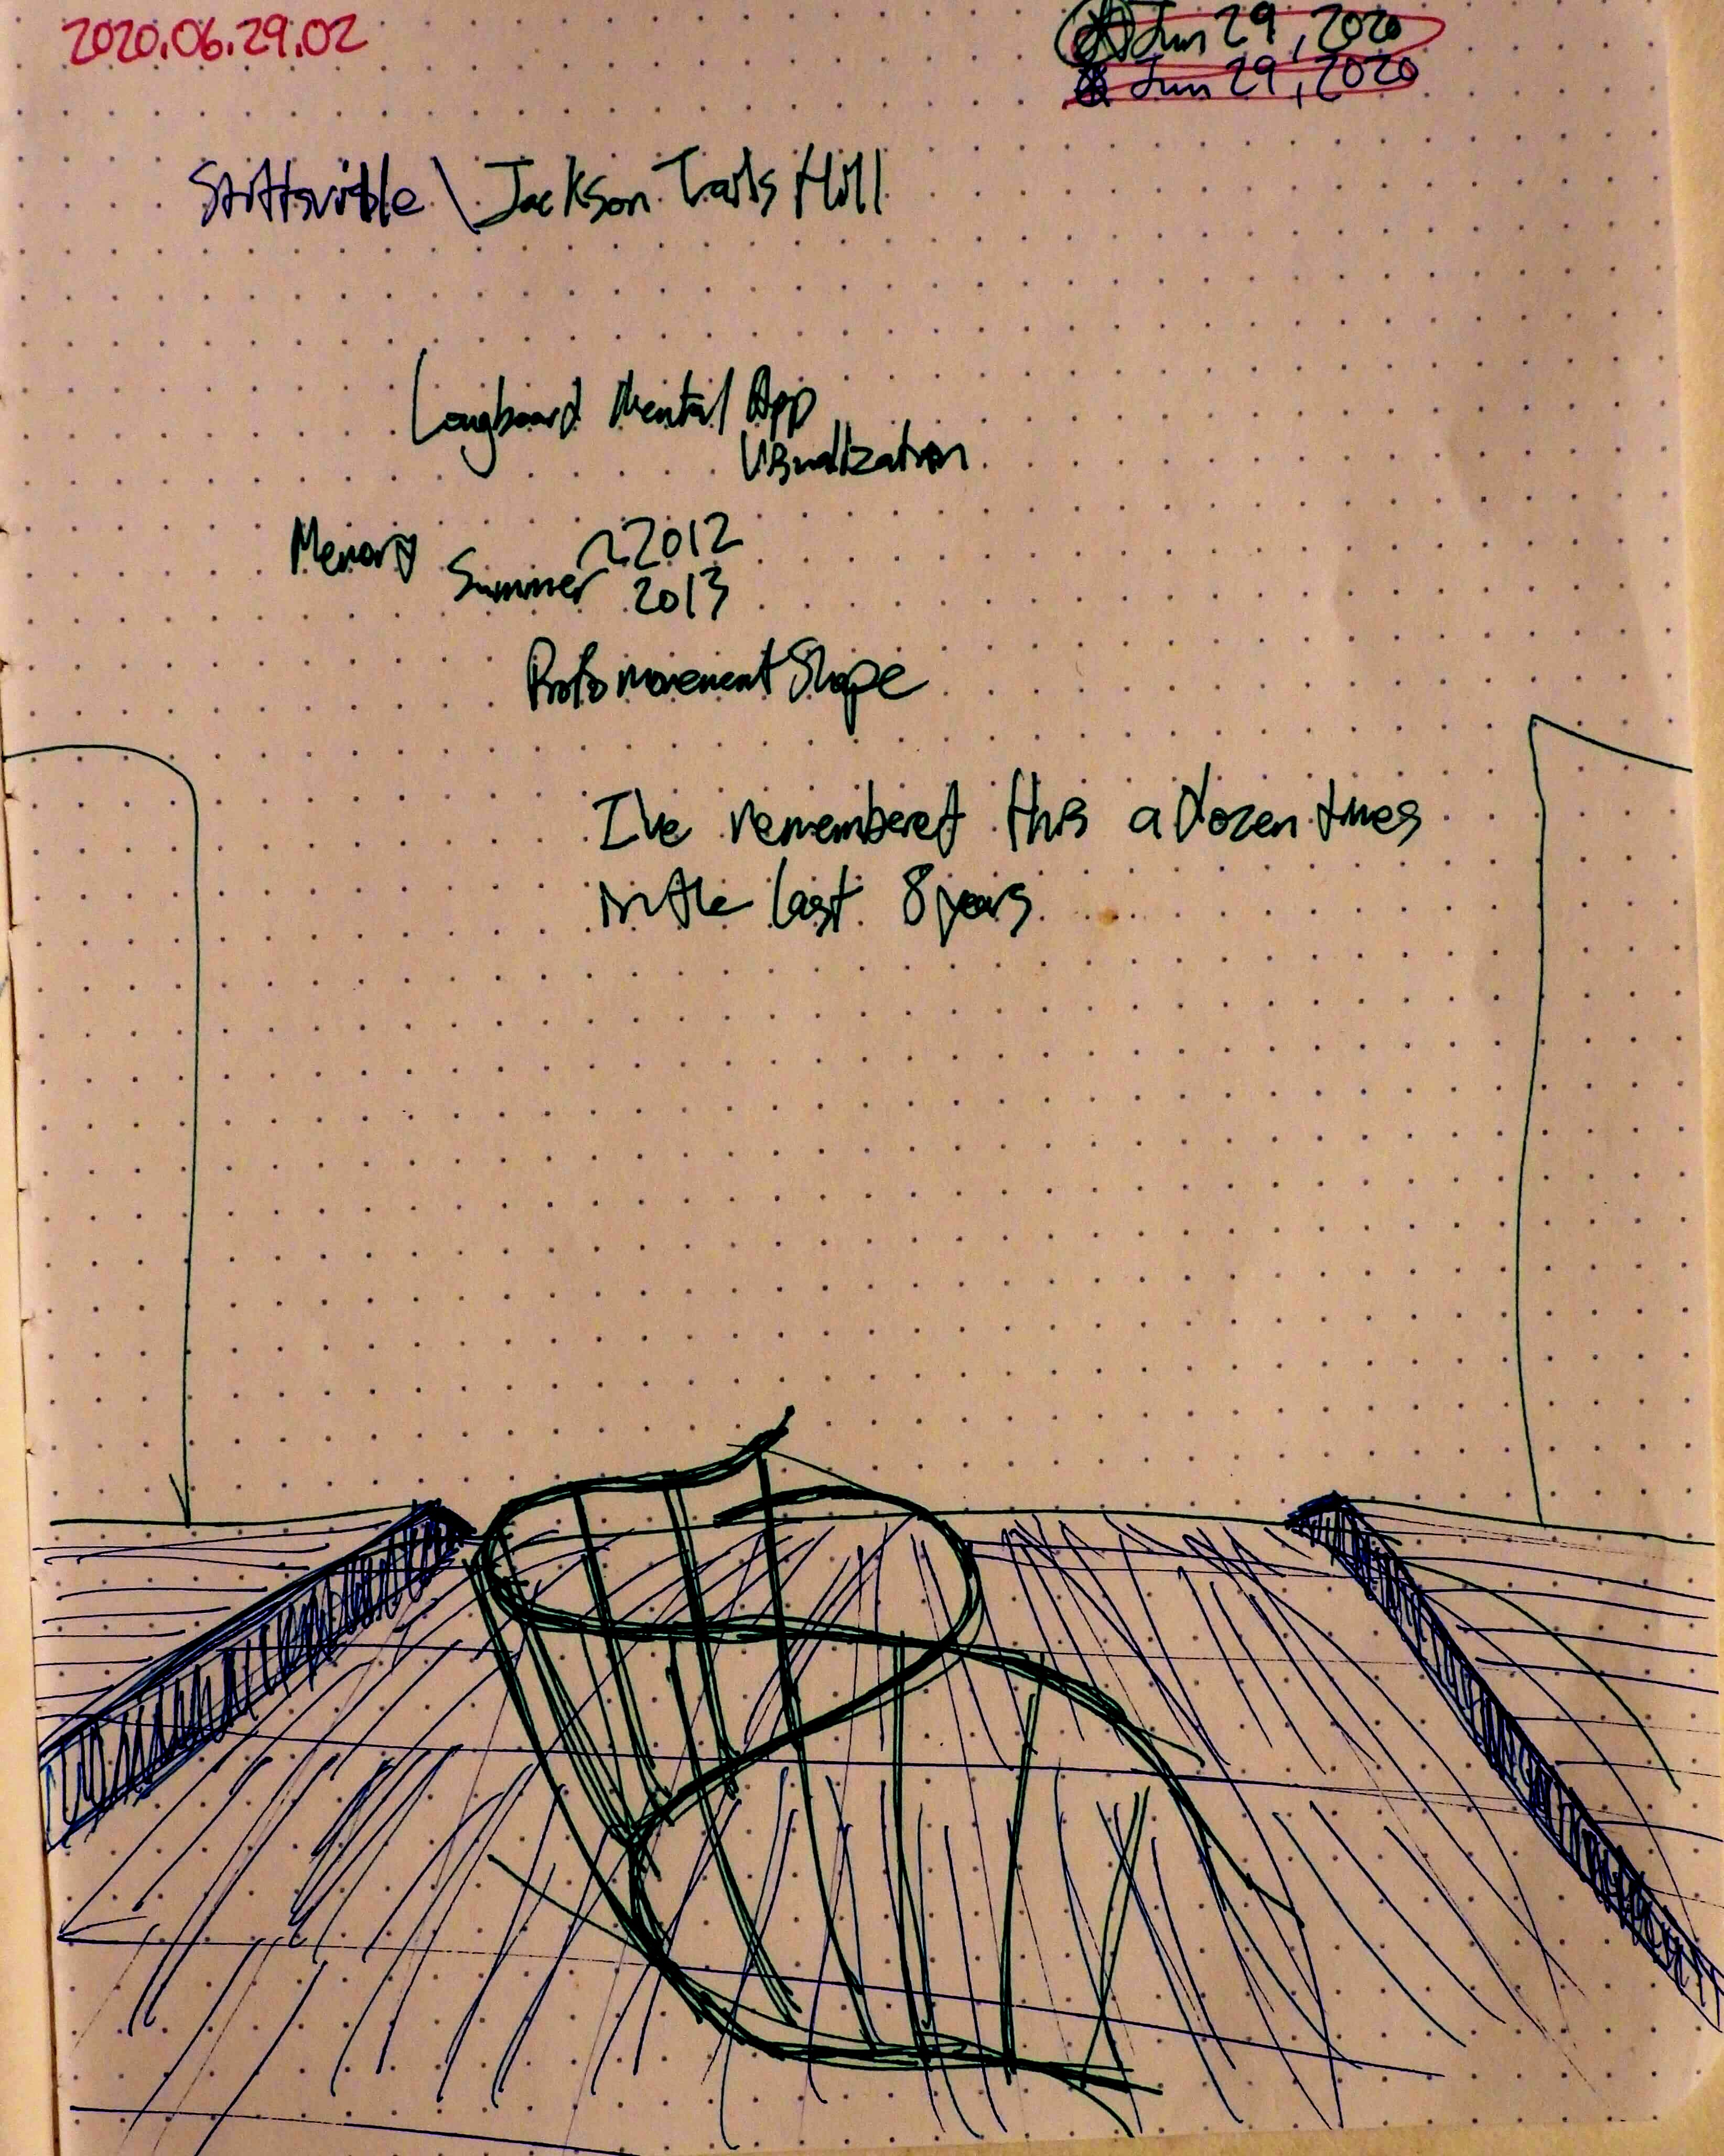 2020.06.29.02
Jun 29, 2020
Jun 29, 2020
Stittsville \ Jackson Trails Hill
Longboard Mental App
Visualization
Memory
~2012
Summer 2013
Proto movement Shape
I've remembered this a dozen times
in the last 8 years